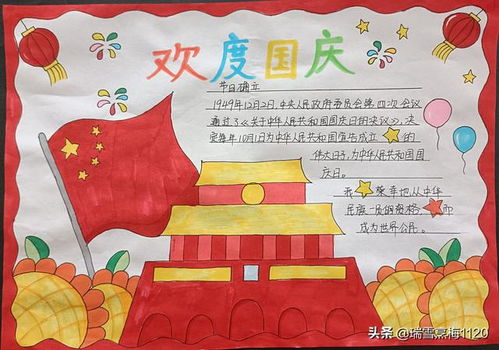 欢度国庆
节日确立
1949年12月2日,中央人民政府委员会第四次会议
通过了《关于中华人民共和国国庆日的决议》,决
定每年10月1日为中华人民共和国宣告成立的
伟大日子,为中华人民共和国国
庆日。
我荣幸地,从中华
民族一员的资格,而
成为世界公民。
头条@瑞雪熹梅1120